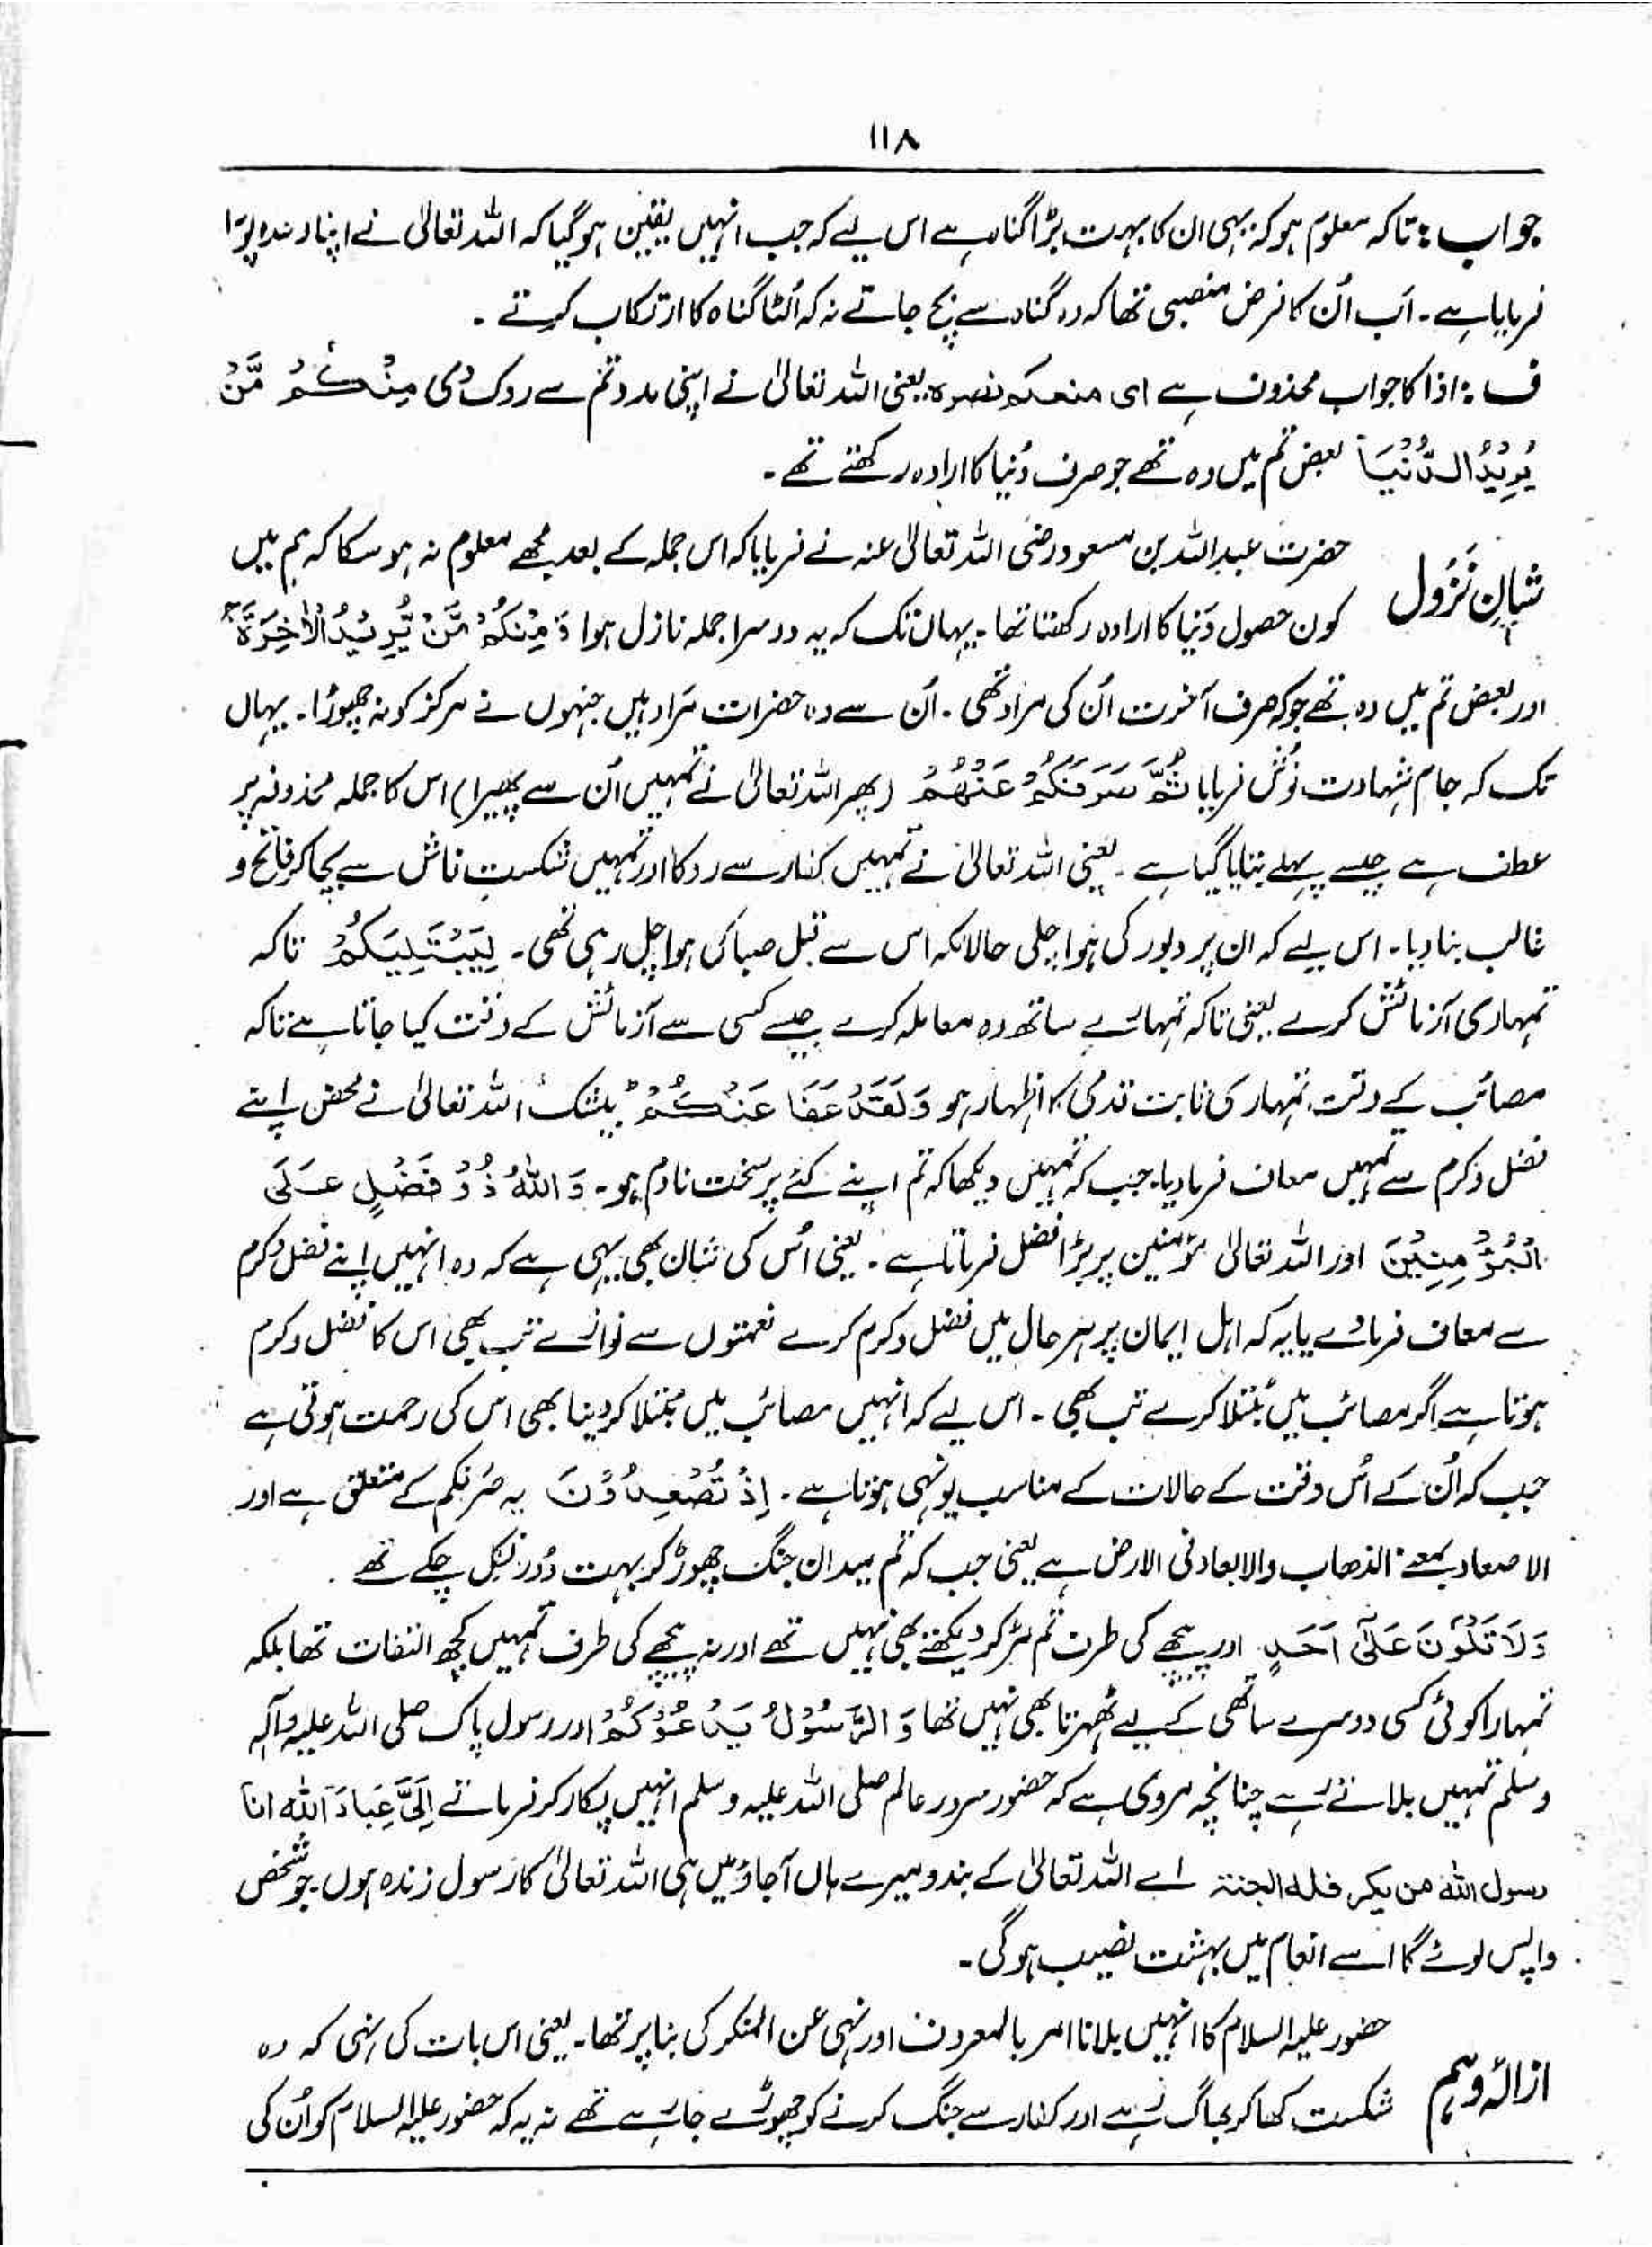 ۱۱۸
جواب : تاکہ معلوم ہو کہ یہی ان کا بہت بڑا گناہ ہے اس لیے کہ جب انہیں یقین ہو گیا کہ اللہ تعالیٰ نے اپنا وعدہ پورا
فرمایا ہے ۔ اب اُن کا فرض منصبی تھا کہ وہ گناہ سے بچ جاتے نہ کہ اُلٹا گناہ کا ارتکاب کرتے ۔
ف : اذا کا جواب محذوف ہے ای منعکم نصرہ یعنی اللہ تعالیٰ نے اپنی مدد تم سے روک دی مِنْكُمْ مَّنْ
يُرِيْدُ الدُّنْيَا بعض تم میں وہ تھے جو صرف دُنیا کا ارادہ رکھتے تھے ۔
شانِ نزول حضرت عبداللہ بن مسعود رضی اللہ تعالیٰ عنہ نے فرمایا کہ اس جملہ کے بعد مجھے معلوم نہ ہو سکا کہ ہم میں
کون حصول دُنیا کا ارادہ رکھتا تھا ۔ یہاں تک کہ یہ دوسرا جملہ نازل ہوا وَ مِنْكُمْ مَّنْ يُّرِيْدُ الْاٰخِرَةَ
اور بعض تم میں وہ تھے جو کہ صرف آخرت اُن کی مراد تھی ۔ اُن سے وہ حضرات مُراد ہیں جنہوں نے مرکز کو نہ چھوڑا ۔ یہاں
تک کہ جامِ شہادت نوش فرمایا ثُمَّ صَرَفَكُمْ عَنْهُمْ (پھر اللہ تعالیٰ نے تمہیں اُن سے پھیرا) اس کا جملہ محذوفہ پر
عطف ہے جیسے پہلے بتایا گیا ہے ۔ یعنی اللہ تعالیٰ نے تمہیں کفار سے روکا اور تمہیں شکست فاش سے بچا کر فاتح و
غالب بنا دیا ۔ اس لیے کہ ان پر دبور کی ہوا چلی حالانکہ اس سے قبل صبا کی ہوا چل رہی تھی ۔ لِيَبْتَلِيَكُمْ تاکہ
تمہاری آزمائش کرے یعنی تاکہ تمہارے ساتھ وہ معاملہ کرے جیسے کسی سے آزمائش کے وقت کیا جاتا ہے تاکہ
مصائب کے وقت تمہاری ثابت قدمی کا اظہار ہو وَ لَقَدْ عَفَا عَنْكُمْ ؕ بیشک اللہ تعالیٰ نے محض اپنے
فضل و کرم سے تمہیں معاف فرما دیا ۔ جب کہ تمہیں دیکھا کہ تم اپنے کئے پر سخت نادم ہو ۔ وَ اللّٰهُ ذُوْ فَضْلٍ عَلَى
الْمُؤْمِنِيْنَ اور اللہ تعالیٰ مؤمنین پر بڑا فضل فرماتا ہے ۔ یعنی اُس کی شان بھی یہی ہے کہ وہ انہیں اپنے فضل و کرم
سے معاف فرمادے یا یہ کہ اہل ایمان پر ہر حال میں فضل و کرم کرے نعمتوں سے نوازے تب بھی اس کا فضل و کرم
ہوتا ہے اگر مصائب میں مُبتلا کرے تب بھی ۔ اس لیے کہ انہیں مصائب میں مبتلا کر دینا بھی اس کی رحمت ہوتی ہے
جب کہ اُن کے اُس وقت کے حالات کے مناسب یونہی ہوتا ہے ۔ اِذْ تُصْعِدُوْنَ یہ صَرَفَکم کے متعلق ہے اور
الاصعاد بمعنے الذھاب والابعاد فی الارض ہے یعنی جب کہ تم میدان جنگ چھوڑ کر بہت دُور نکل چکے تھے ۔
وَ لَا تَلْوٗنَ عَلٰۤى اَحَدٍ اور پیچھے کی طرف تم مڑ کر دیکھتے بھی نہیں تھے اور نہ پیچھے کی طرف تمہیں کچھ التفات تھا بلکہ
تمہارا کوئی کسی دوسرے ساتھی کے لیے ٹھہرتا بھی نہیں تھا وَ الرَّسُوْلُ يَدْعُوْكُمْ اور رسول پاک صلی اللہ علیہ وآلہ
وسلم تمہیں بلاتے رہے چنانچہ مروی ہے کہ حضور سرور عالم صلی اللہ علیہ وسلم انہیں پکار کر فرماتے اِلَیَّ عِبَادَ اللہ انا
رسول اللہ من یکر فلہ الجنۃ اے اللہ تعالیٰ کے بندو میرے ہاں آجاؤ میں ہی اللہ تعالیٰ کا رسول زندہ ہوں جو شخص
واپس لوٹے گا اسے انعام میں بہشت نصیب ہو گی ۔
ازالۂ وہم حضور علیہ السلام کا انہیں بلانا امر بالمعروف اور نہی عن المنکر کی بنا پر تھا ۔ یعنی اس بات کی نہی کہ وہ
شکست کھا کر بھاگ رہے اور کفار سے جنگ کرنے کو چھوڑے جا رہے تھے نہ یہ کہ حضور علیہ السلام کو اُن کی